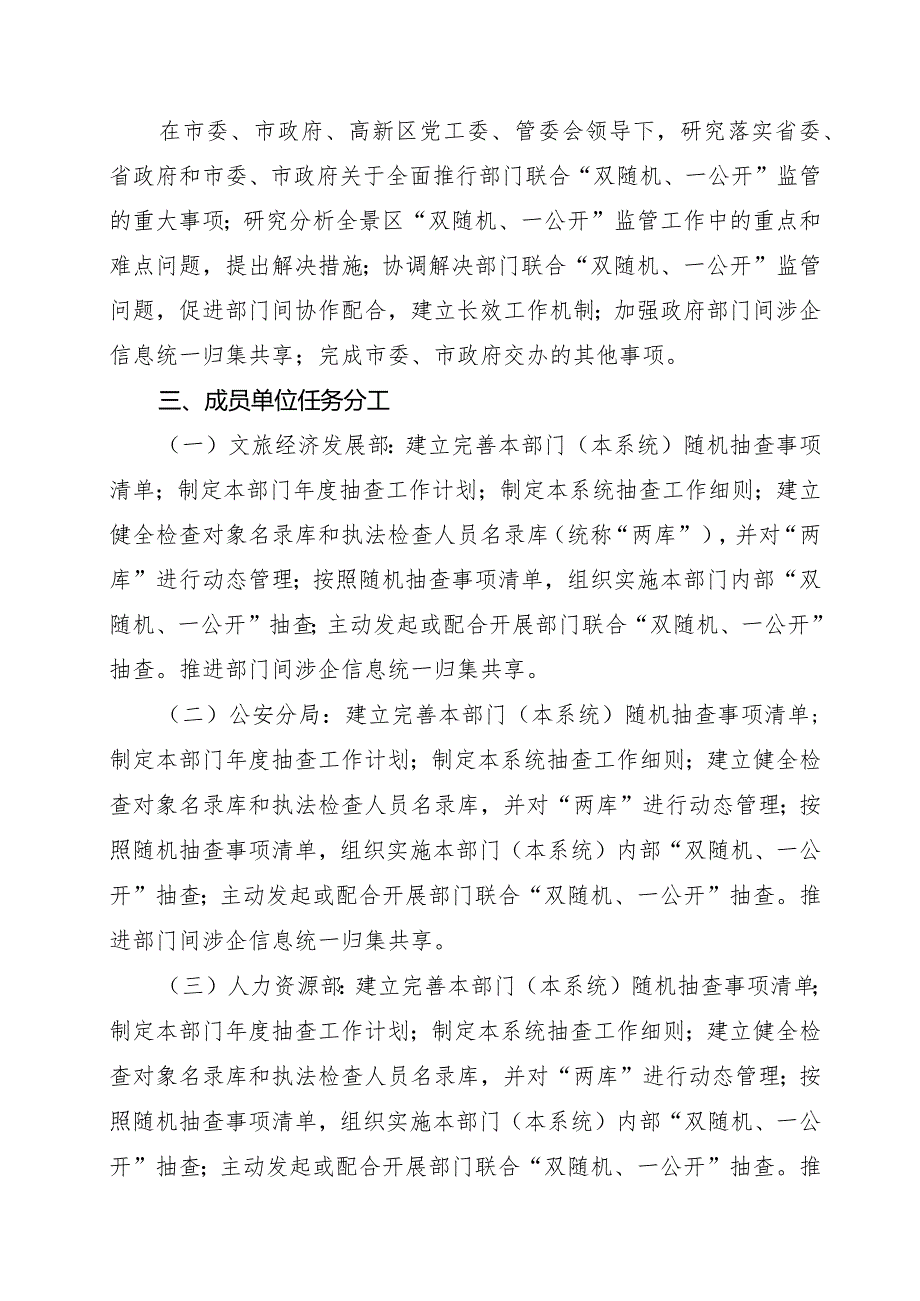 在市委、市政府、高新区党工委、管委会领导下，研究落实省委、
省政府和市委、市政府关于全面推行部门联合“双随机、一公开”监管
的重大事项；研究分析全景区“双随机、一公开”监管工作中的重点和
难点问题，提出解决措施；协调解决部门联合“双随机、一公开”监管
问题，促进部门间协作配合，建立长效工作机制；加强政府部门间涉企
信息统一归集共享；完成市委、市政府交办的其他事项。
三、成员单位任务分工
（一）文旅经济发展部：建立完善本部门（本系统）随机抽查事项
清单；制定本部门年度抽查工作计划；制定本系统抽查工作细则；建立
健全检查对象名录库和执法检查人员名录库（统称“两库”），并对“两
库”进行动态管理；按照随机抽查事项清单，组织实施本部门内部“双
随机、一公开”抽查；主动发起或配合开展部门联合“双随机、一公开”
抽查。推进部门间涉企信息统一归集共享。
（二）公安分局：建立完善本部门（本系统）随机抽查事项清单；
制定本部门年度抽查工作计划；制定本系统抽查工作细则；建立健全检
查对象名录库和执法检查人员名录库，并对“两库”进行动态管理；按
照随机抽查事项清单，组织实施本部门（本系统）内部“双随机、一公
开”抽查；主动发起或配合开展部门联合“双随机、一公开”抽查。推
进部门间涉企信息统一归集共享。
（三）人力资源部：建立完善本部门（本系统）随机抽查事项清单；
制定本部门年度抽查工作计划；制定本系统抽查工作细则；建立健全检
查对象名录库和执法检查人员名录库，并对“两库”进行动态管理；按
照随机抽查事项清单，组织实施本部门（本系统）内部“双随机、一公
开”抽查；主动发起或配合开展部门联合“双随机、一公开”抽查。推